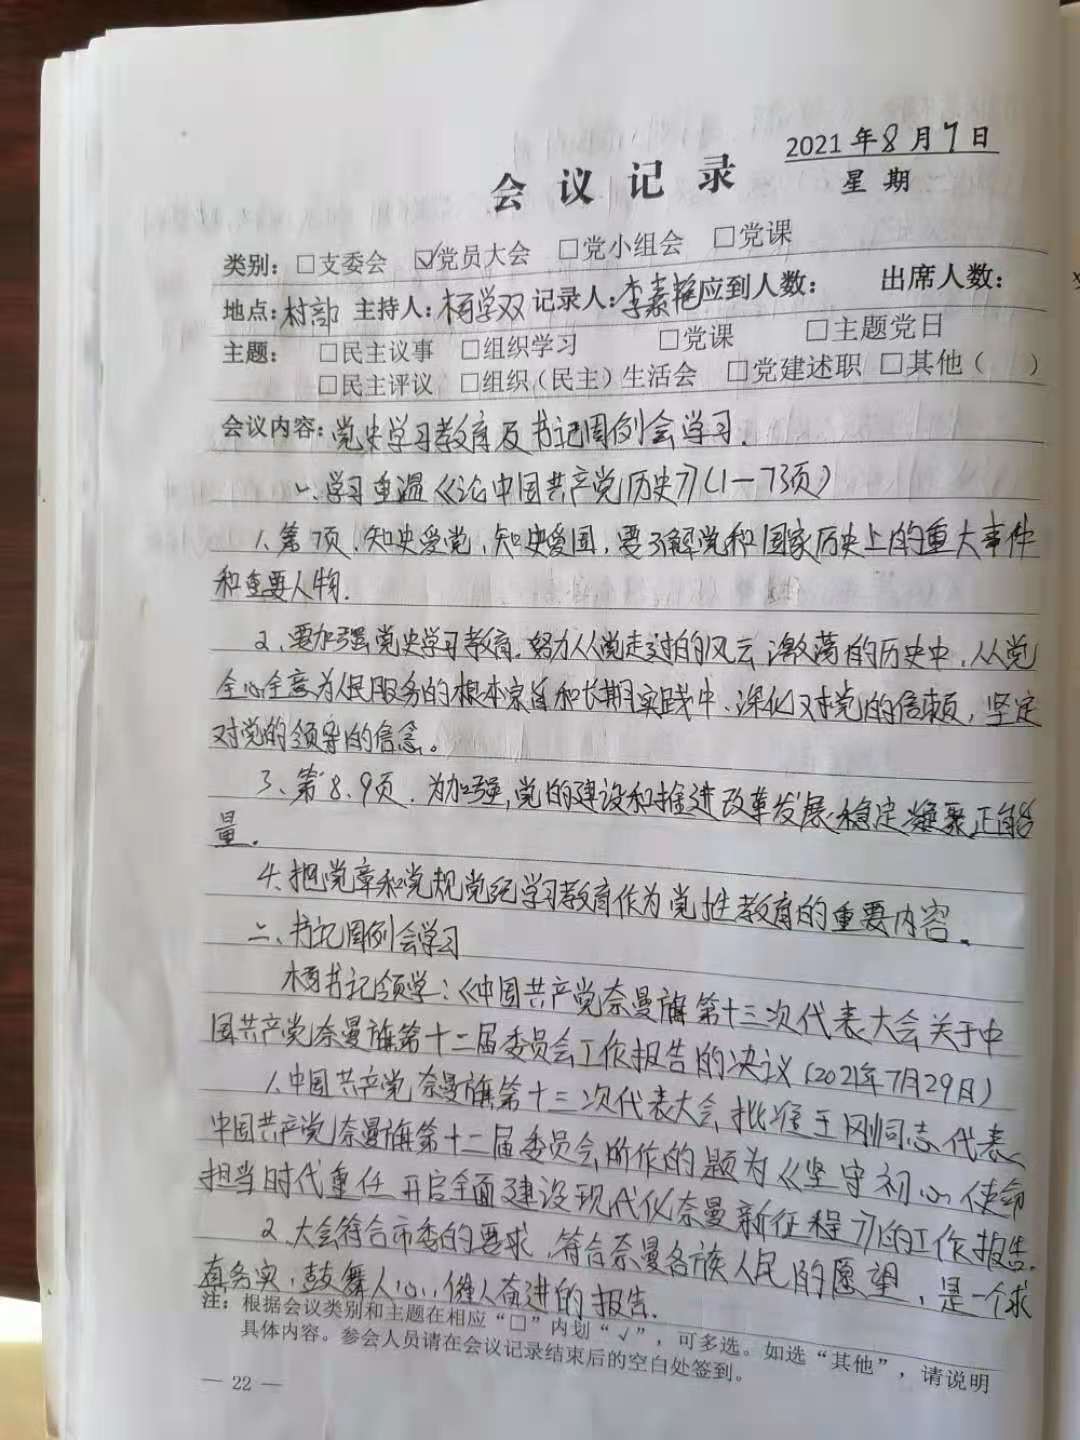 2021年8月7日
会议记录
星期
类别：□支委会 ☑党员大会 □党小组会 □党课
地点：村部 主持人：杨学双 记录人：李素艳 应到人数： 出席人数：
主题： □民主议事 □组织学习 □党课 □主题党日
□民主评议 □组织（民主）生活会 □党建述职 □其他（ ）
会议内容：党史学习教育及书记周例会学习.
一、学习重温《论中国共产党历史》（1—73页）
1、第7页，知史爱党，知史爱国，要了解党和国家历史上的重大事件
和重要人物.
2、要加强党史学习教育，努力从党走过的风云激荡的历史中，从党
全心全意为人民服务的根本宗旨和长期实践中，深化对党的信赖，坚定
对党的领导的信念。
3、第8、9页，为加强，党的建设和推进改革发展稳定凝聚正能
量。
4、把党章和党规党纪学习教育作为党性教育的重要内容。
二、书记周例会学习
杨书记领学：《中国共产党奈曼旗第十三次代表大会关于中
国共产党奈曼旗第十二届委员会工作报告的决议（2021年7月29日）
1、中国共产党奈曼旗第十三次代表大会，批准王刚同志代表
中国共产党奈曼旗第十二届委员会所作的题为《坚守初心使命
担当时代重任 开启全面建设现代化奈曼新征程》的工作报告.
2、大会符合市委的要求，符合奈曼各族人民的愿望，是一个求
真务实，鼓舞人心，催人奋进的报告.
注：根据会议类别和主题在相应“□”内划“√”，可多选。如选“其他”，请说明
具体内容。参会人员请在会议记录结束后的空白处签到。
— 22 —